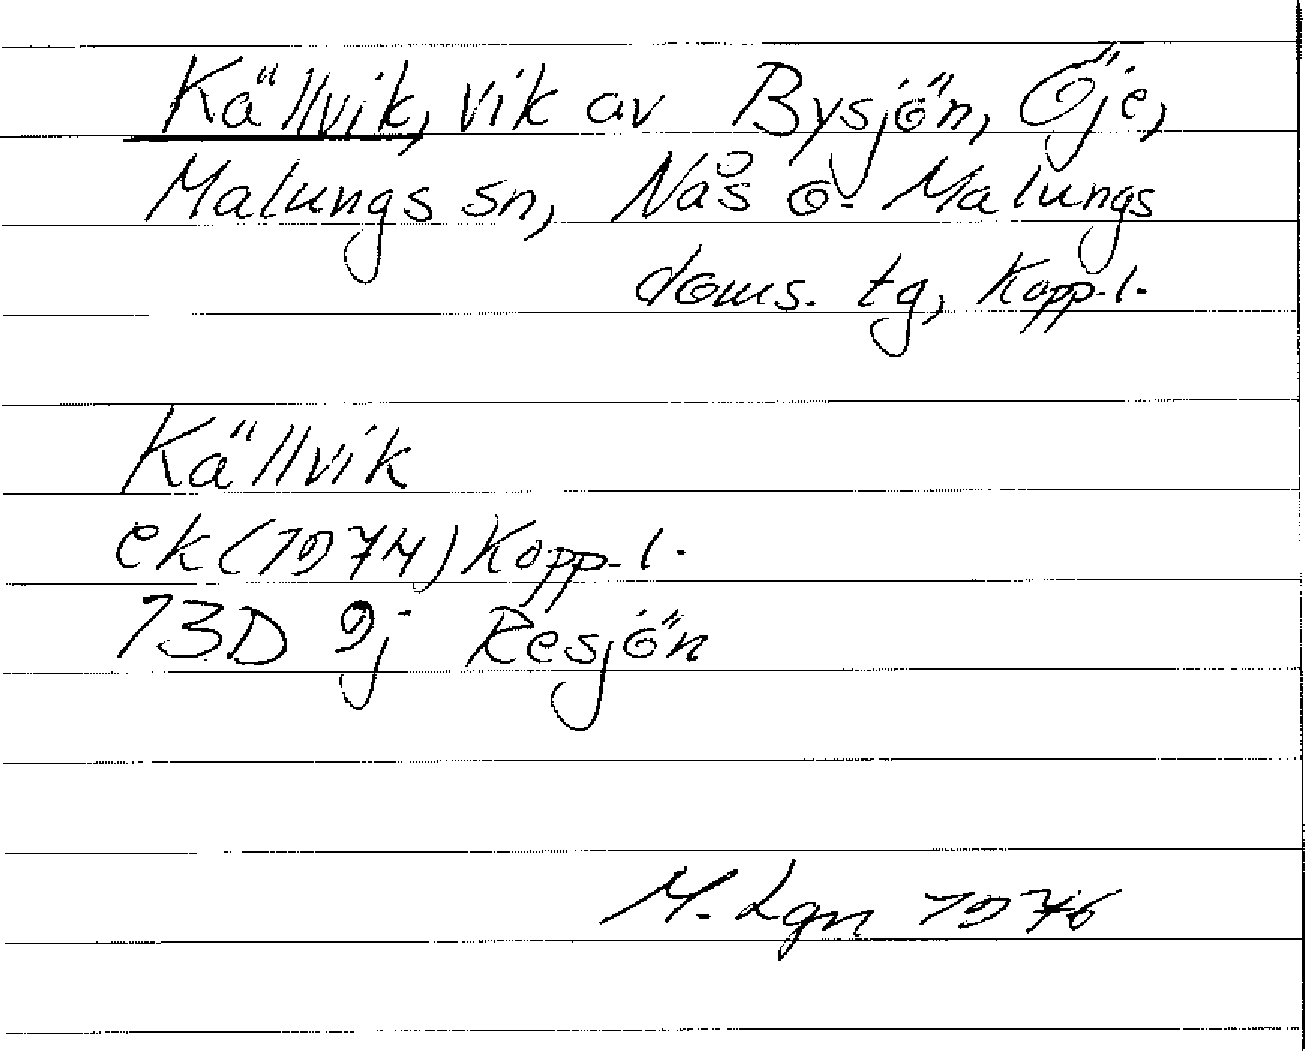 Källvik, vik av Bysjön, Öje,
Malungs sn, Nås o. Malungs
doms. tg, Kopp.l.
Källvik
ek (1974) Kopp.l.
13D 9j Resjön
M. Lgn 1976